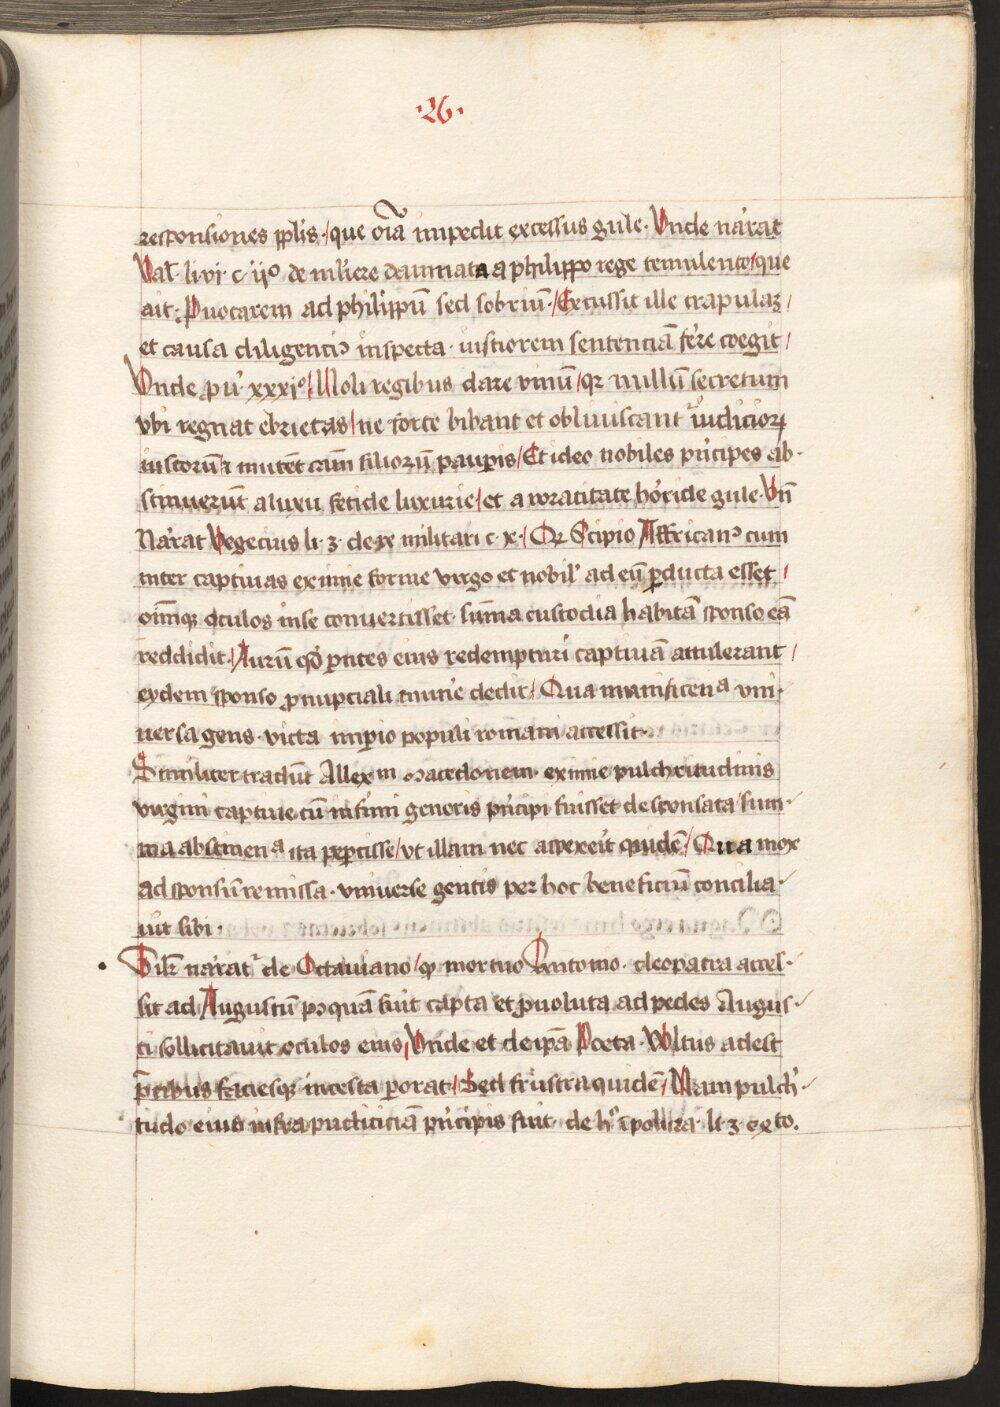 ·26·
responsiones pplis· que oīa impedit excessus gule· Vnde narat
Val· li vi c· ijo de muliere dāmnata a philippo rege temulento que
ait· Puocarem ad philippū sed sobriū· Excussit ille crapulaz
et causa diligenciꝰ inspecta· iustiorem sentenciā ferre coegit
Vnde pu' xxxio· Noli regibus dare vinū qꝛ nullū secretum
vbi regnat ebrietas ne forte bibant et obliuiscant' iudicioꝝ
iustorū ⁊ mutēt cām filiorū paupis Et ideo nobiles prīcipes ab·
stinuerūt a luxu fetide luxurie et a voracitate horride gule· Vn̄
Narat Vegecius li· 3· de re militari c· x· Qꝛ Scipio Affricanꝰ cum
inter captiuas eximie forme virgo et nobil' ad eū pducta esset
oīmqꝫ oculos in se conuertisset· sūma custodia habitā sponso eā
reddidit· Aurū qd' pntes eius redempturi captiuā attulerant
eydem sponso p nupciali mūe dedit Qua munificenᵃ vni·
uersa gens· victa impio populi romani accessit·
Similiter tradūt Allexm macedonem· eximie pulchritudinis
virgini captiue cū infimi generis prīcipi fuisset desponsata sum·
ma abstinenᵃ ita pepcisse vt illam nec aspexeīt quidē Qua mox
ad sponsū remissa· vniuerse gentis per hoc beneficiū concilia·
uit sibi·
Silr narat' de Octauiano qꝫ mortuo Antonio· cleopatra accel·
sit ad Augustū pꝰquā fuit capta et puoluta ad pedes Augus·
ti sollicitauit oculos eius Vnde et de ipā Poeta· Wltus adest
pcibus faciesqꝫ incesta porat· Sed frustra quidē Nam pulch'·
tudo eius infra pudiciciā prīcipis fuit· de h' ī pollicra· li· 3·